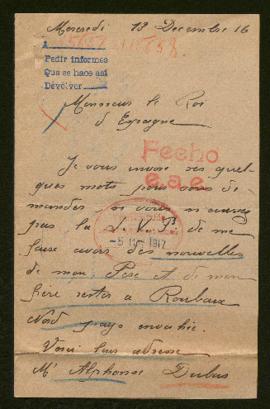 Mercredi 13 Decembre 16
A
Pedir informes
Que se hace asi
Dévolver
Monsieur le Roi
d'Espagne
Fecho
e.a.e.
Je vous envoie ces quel-
ques mots pour vous de-
mander si vous n'auriez
pas la S.V.P. de me
faire avoir des nouvelles
-5 1917
de mon Père et de mon
frère restés à Roubaix
Nord pays envahie.
Voici leur adresse
Mr Alphonse Dubus